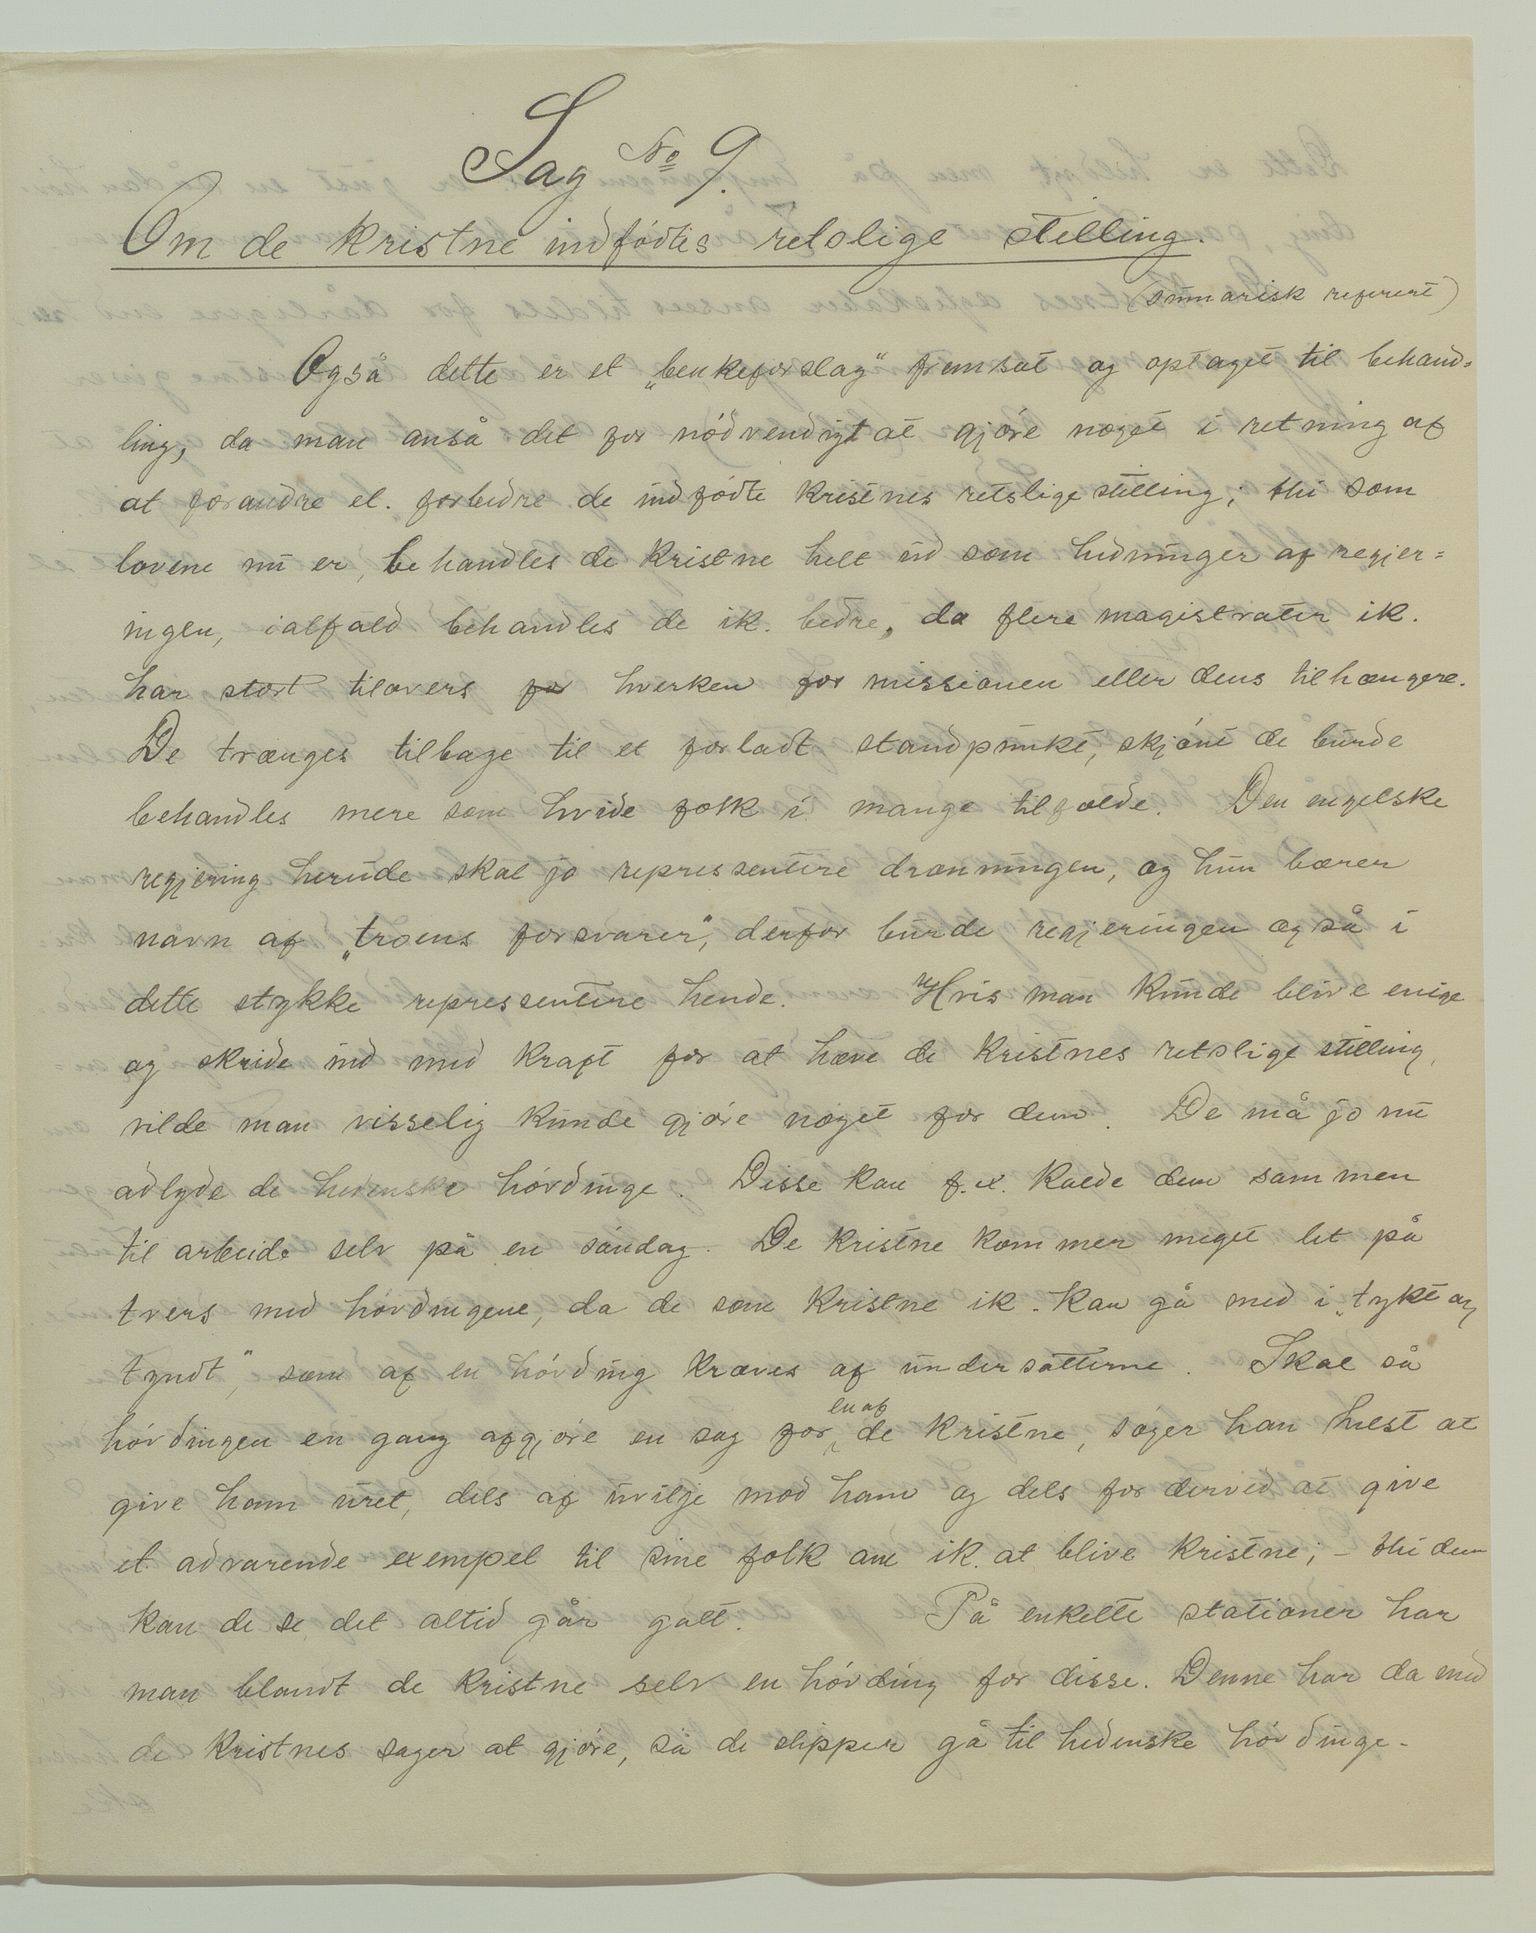 Sag No 9.
Om de kristne indfødtes retslige stilling.
(summarisk referert)
Også dette er et „benkeforslag" fremsat og optaget til behand=
ling, da man anså det for nødvendigt at gjøre noget i retning af
at forandre el. forbedre de indfødte kristnes retslige stilling; thi som
lovene nu er, behandles de kristne helt ud som hedninger af regjer=
ingen, ialfald behandles de ik. bedre, da flere magistrater ik.
har stort tilovers for hverken for missionen eller dens tilhængere.
De trænges tilbage til et forladt standpunkt, skjønt de burde
behandles mere som hvide folk i mange tilfælde. Den engelske
regjering herude skal jo repressentere dronningen, og hun bærer
navn af „troens forsvarer", derfor burde regjeringen også i
dette stykke repressentere hende. Hvis man kunde blive enige
og skride ind med kraft for at hæve de kristnes retslige stilling,
vilde man visselig kunde gjøre noget for dem. De må jo nu
adlyde de hedenske høvdinge. Disse kan f.ex. kalde dem sammen
til arbeide selv på en søndag. De kristne kommer meget let på
tvers med høvdingene, da de som kristne ik. kan gå med i „tykt og
tyndt", som af en høvding kræves af undersåtterne. Skal så
høvdingen en gang afgjøre en sag for en af de kristne, søger han helst at
give ham uret, dels af uvilje mod ham og dels for derved at give
et advarende exempel til sine folk om ik. at blive kristne; – thi dem
kan de se det altid går galt. På enkelte stationer har
man blandt de kristne selv en høvding for disse. Denne har da med
de kristnes sager at gjøre, så de slipper gå til hedenske høvdinge.